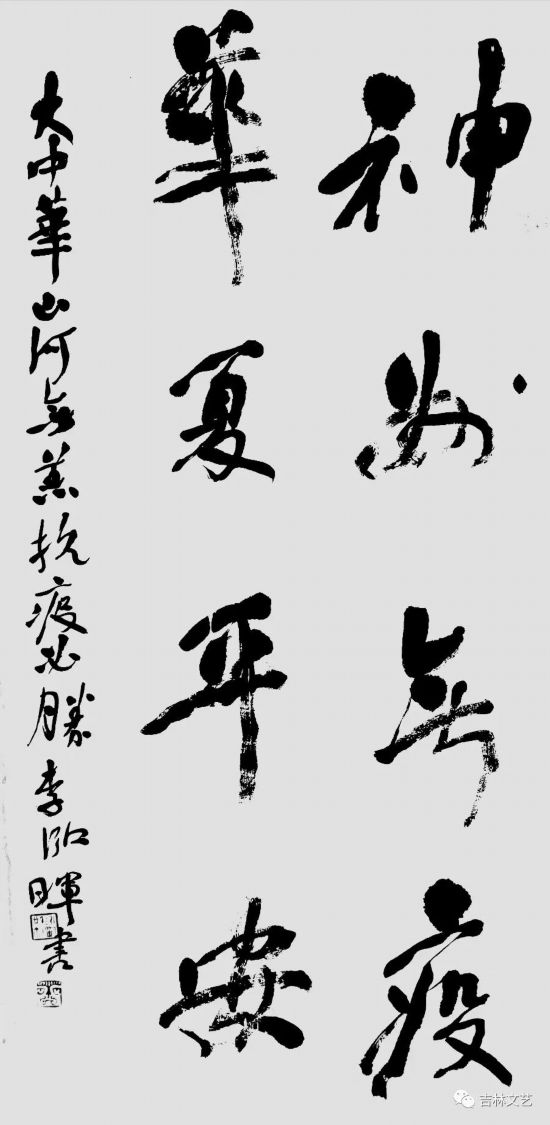 神州無疫
華夏平安
大中華山河無恙抗疫必勝李暉書
吉林文艺